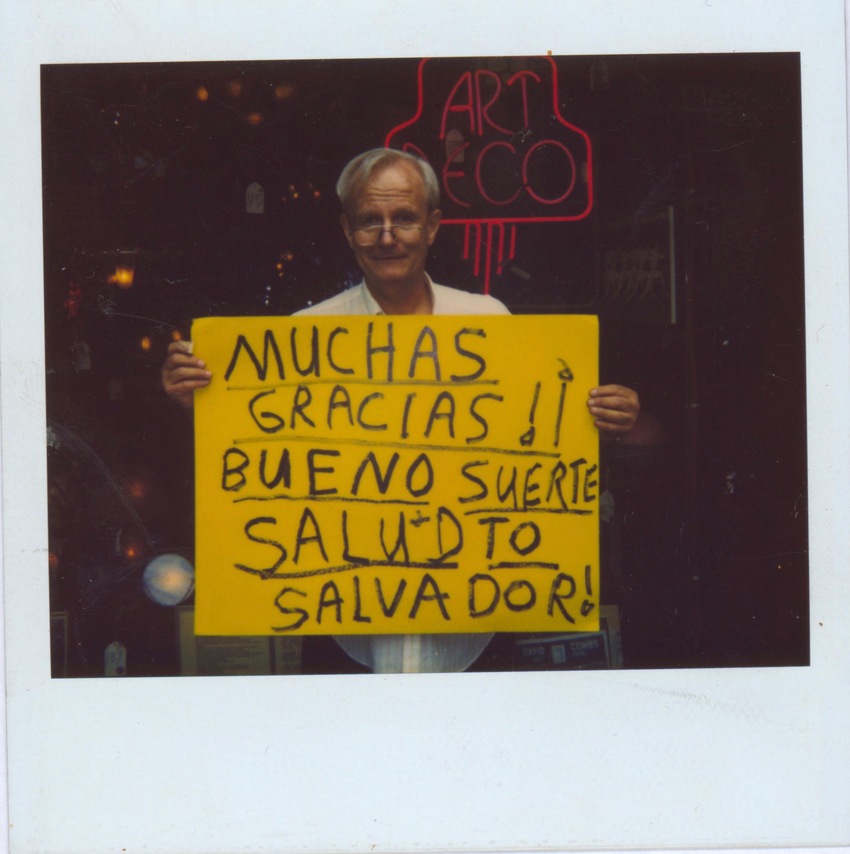 ART
DECO
MUCHAS
GRACIAS !¡
BUENO SUERTE
SALUD TO
SALVADOR!